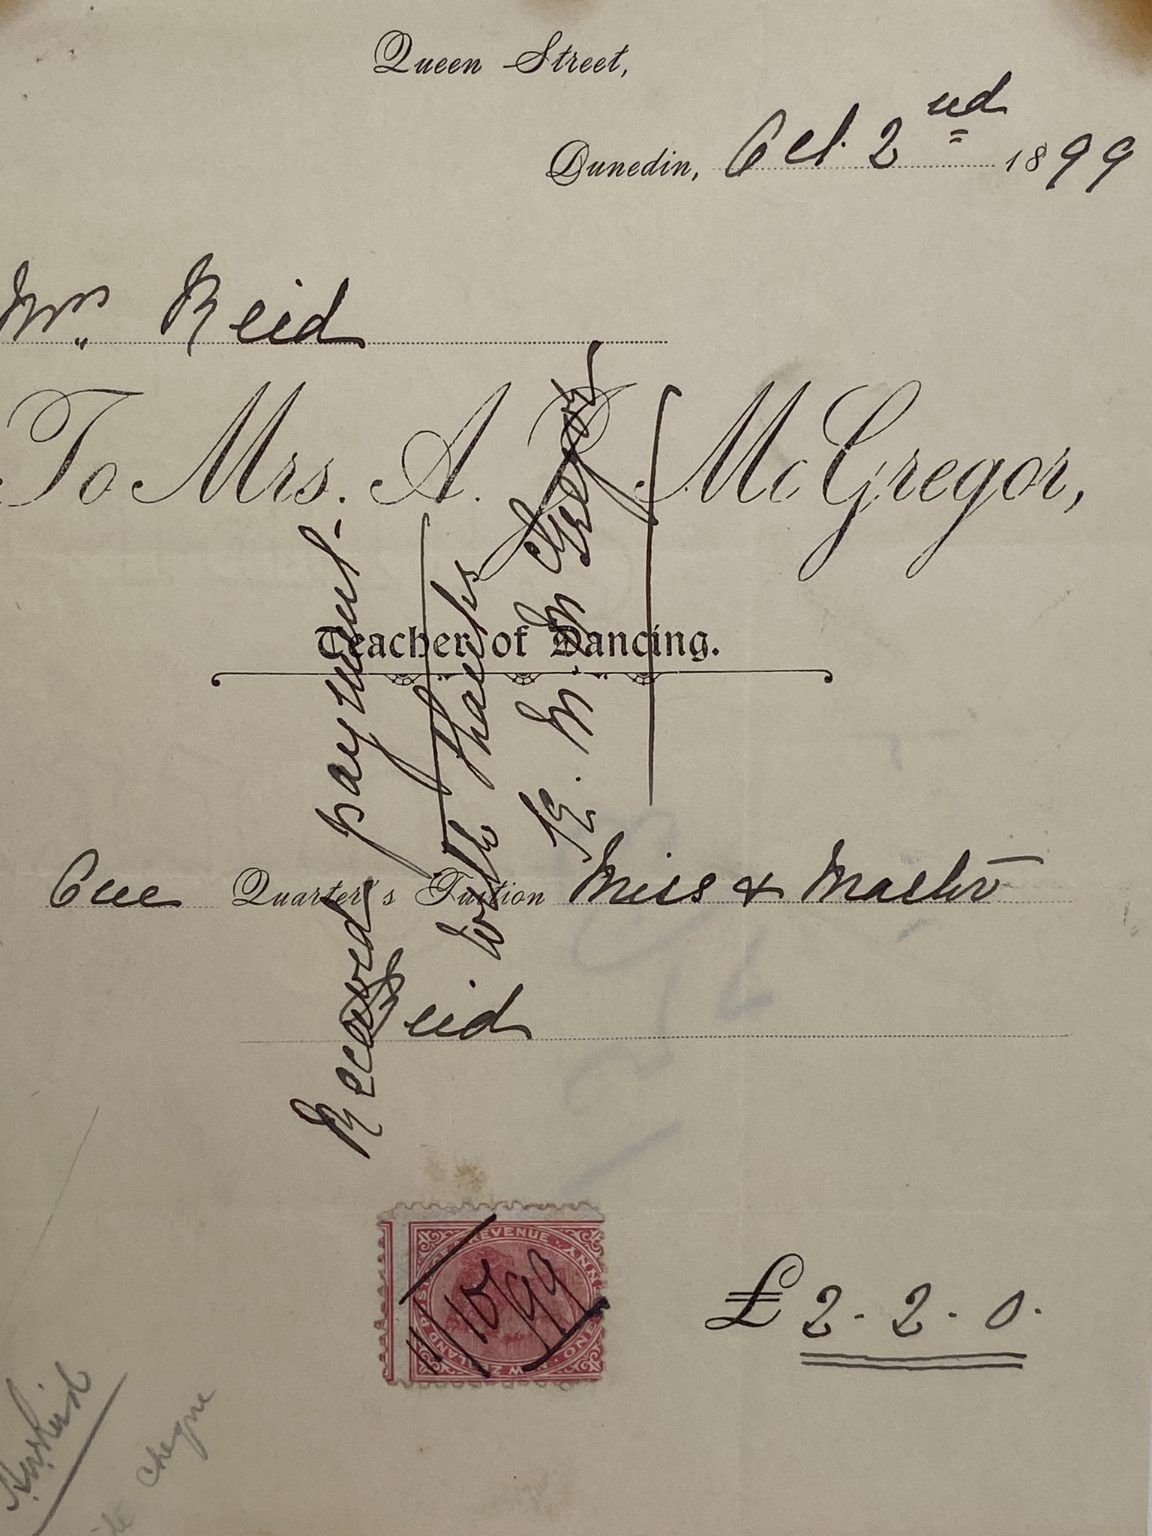 Queen Street,
Dunedin, Oct. 2nd 1899
Mrs. Reid
To Mrs. A. R. McGregor,
Teacher of Dancing.
One Quarter's Tuition Miss & Master
Reid
Received payment.
with thanks
McGregor
REVENUE
11/10/99
£2.2.0.
cheque